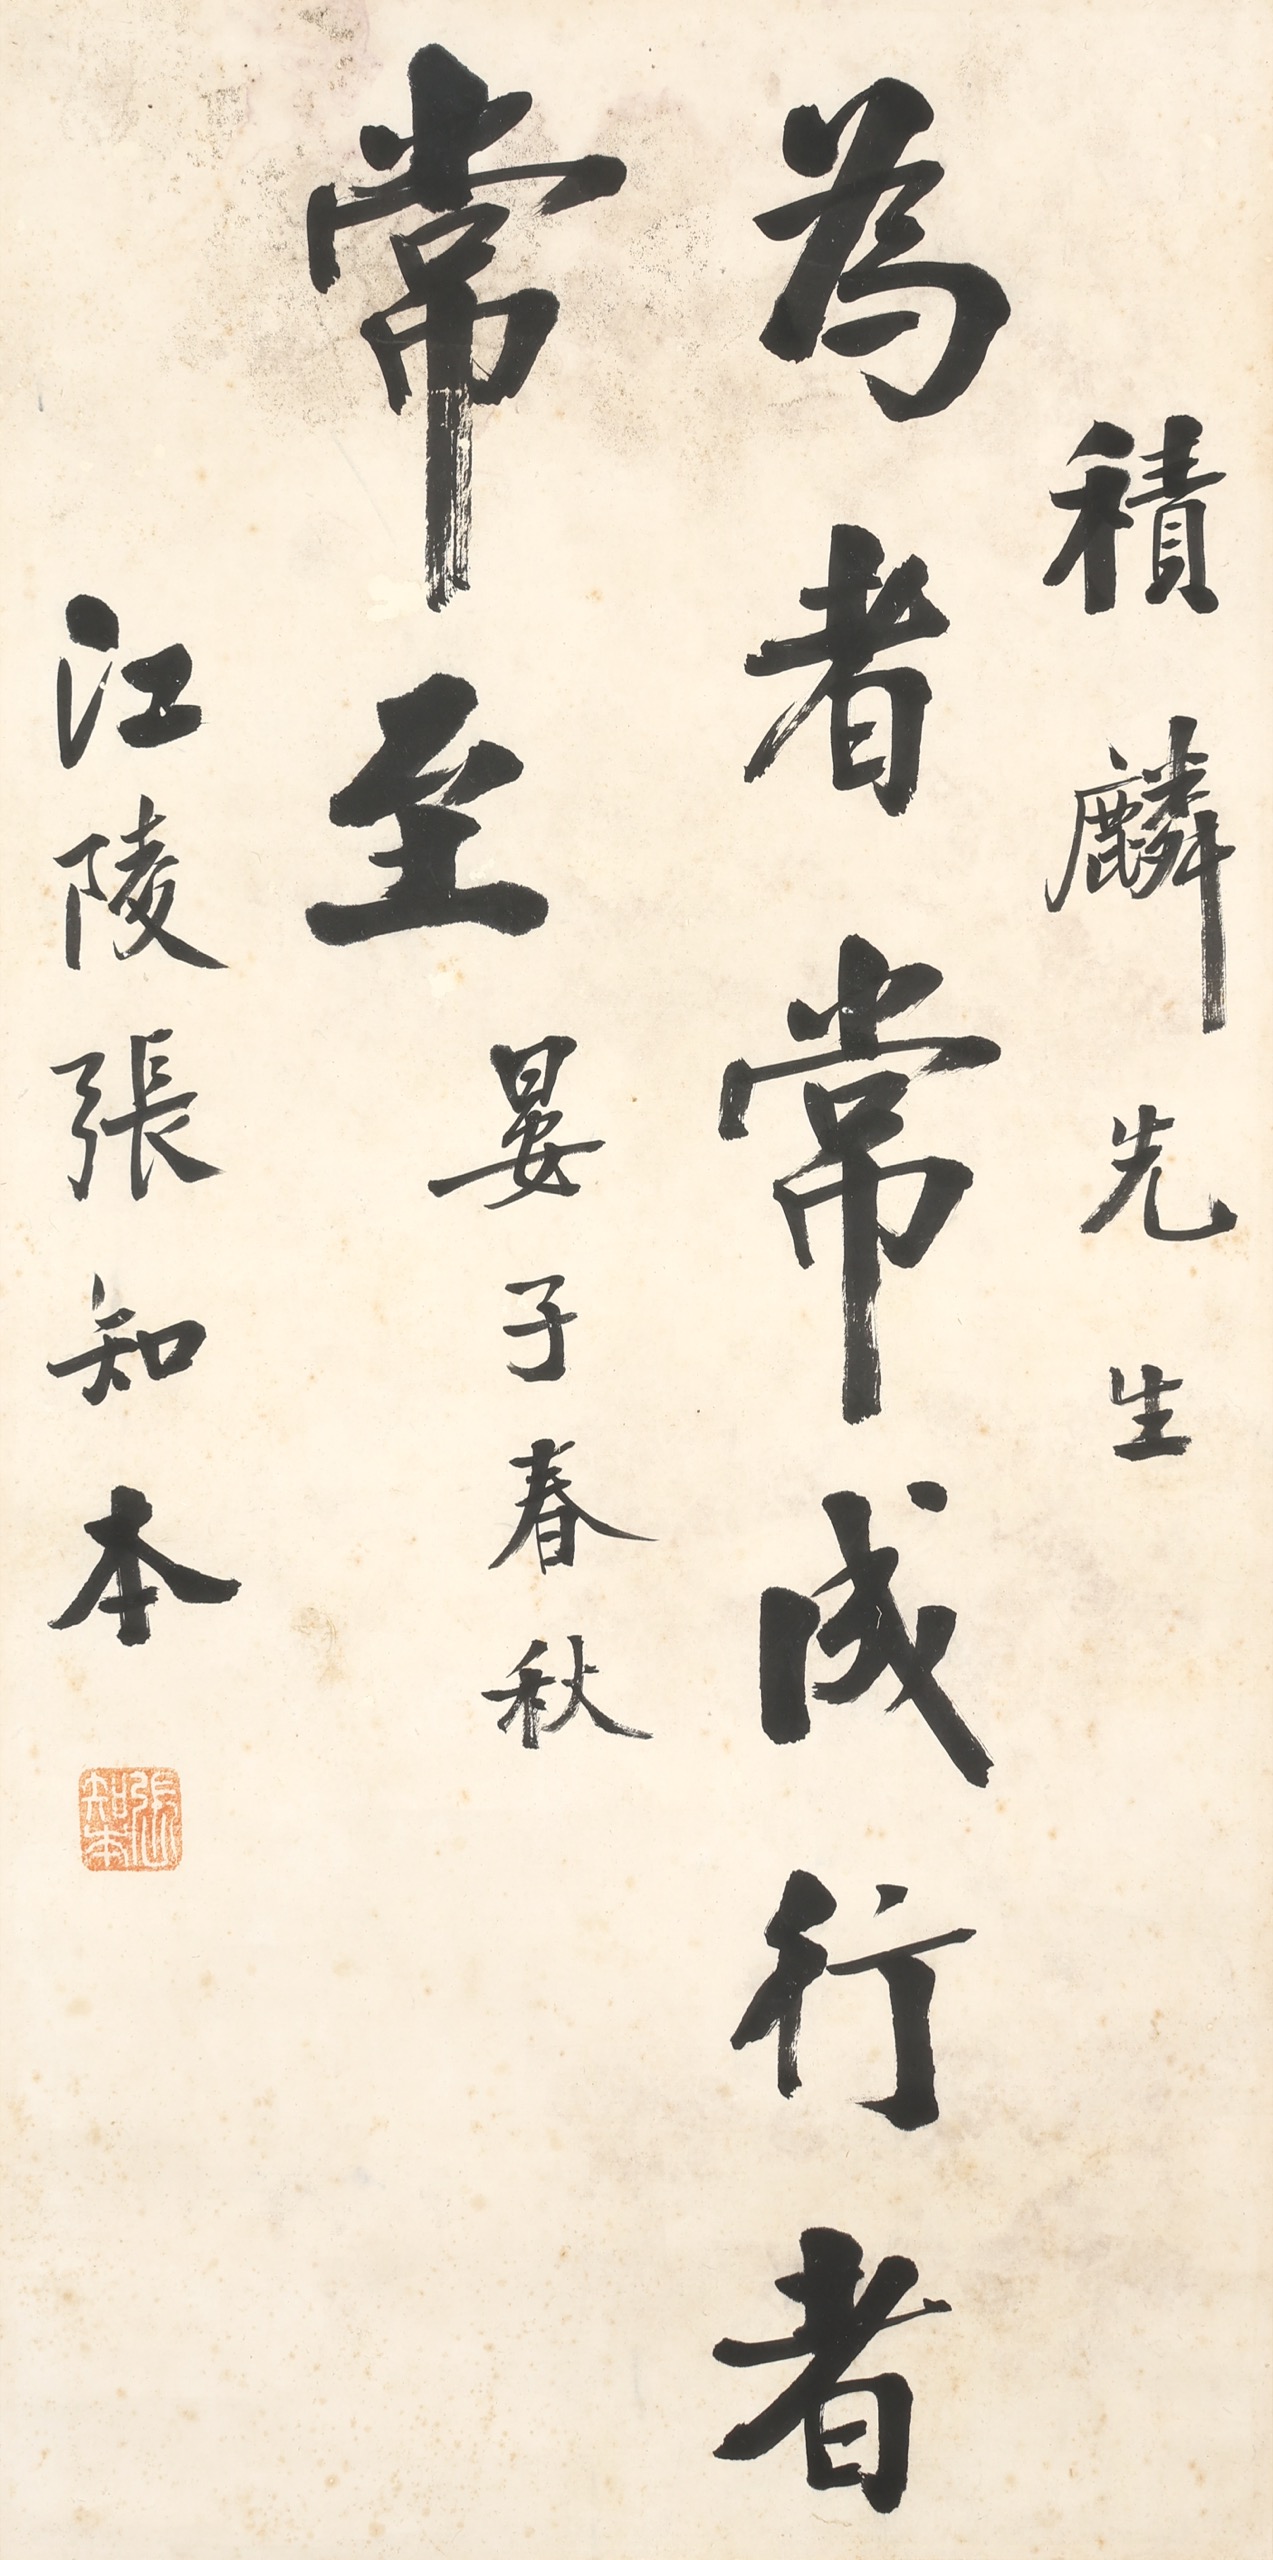 積麟先生
為者常成行者
常至
晏子春秋
江陵張知本
張知本印